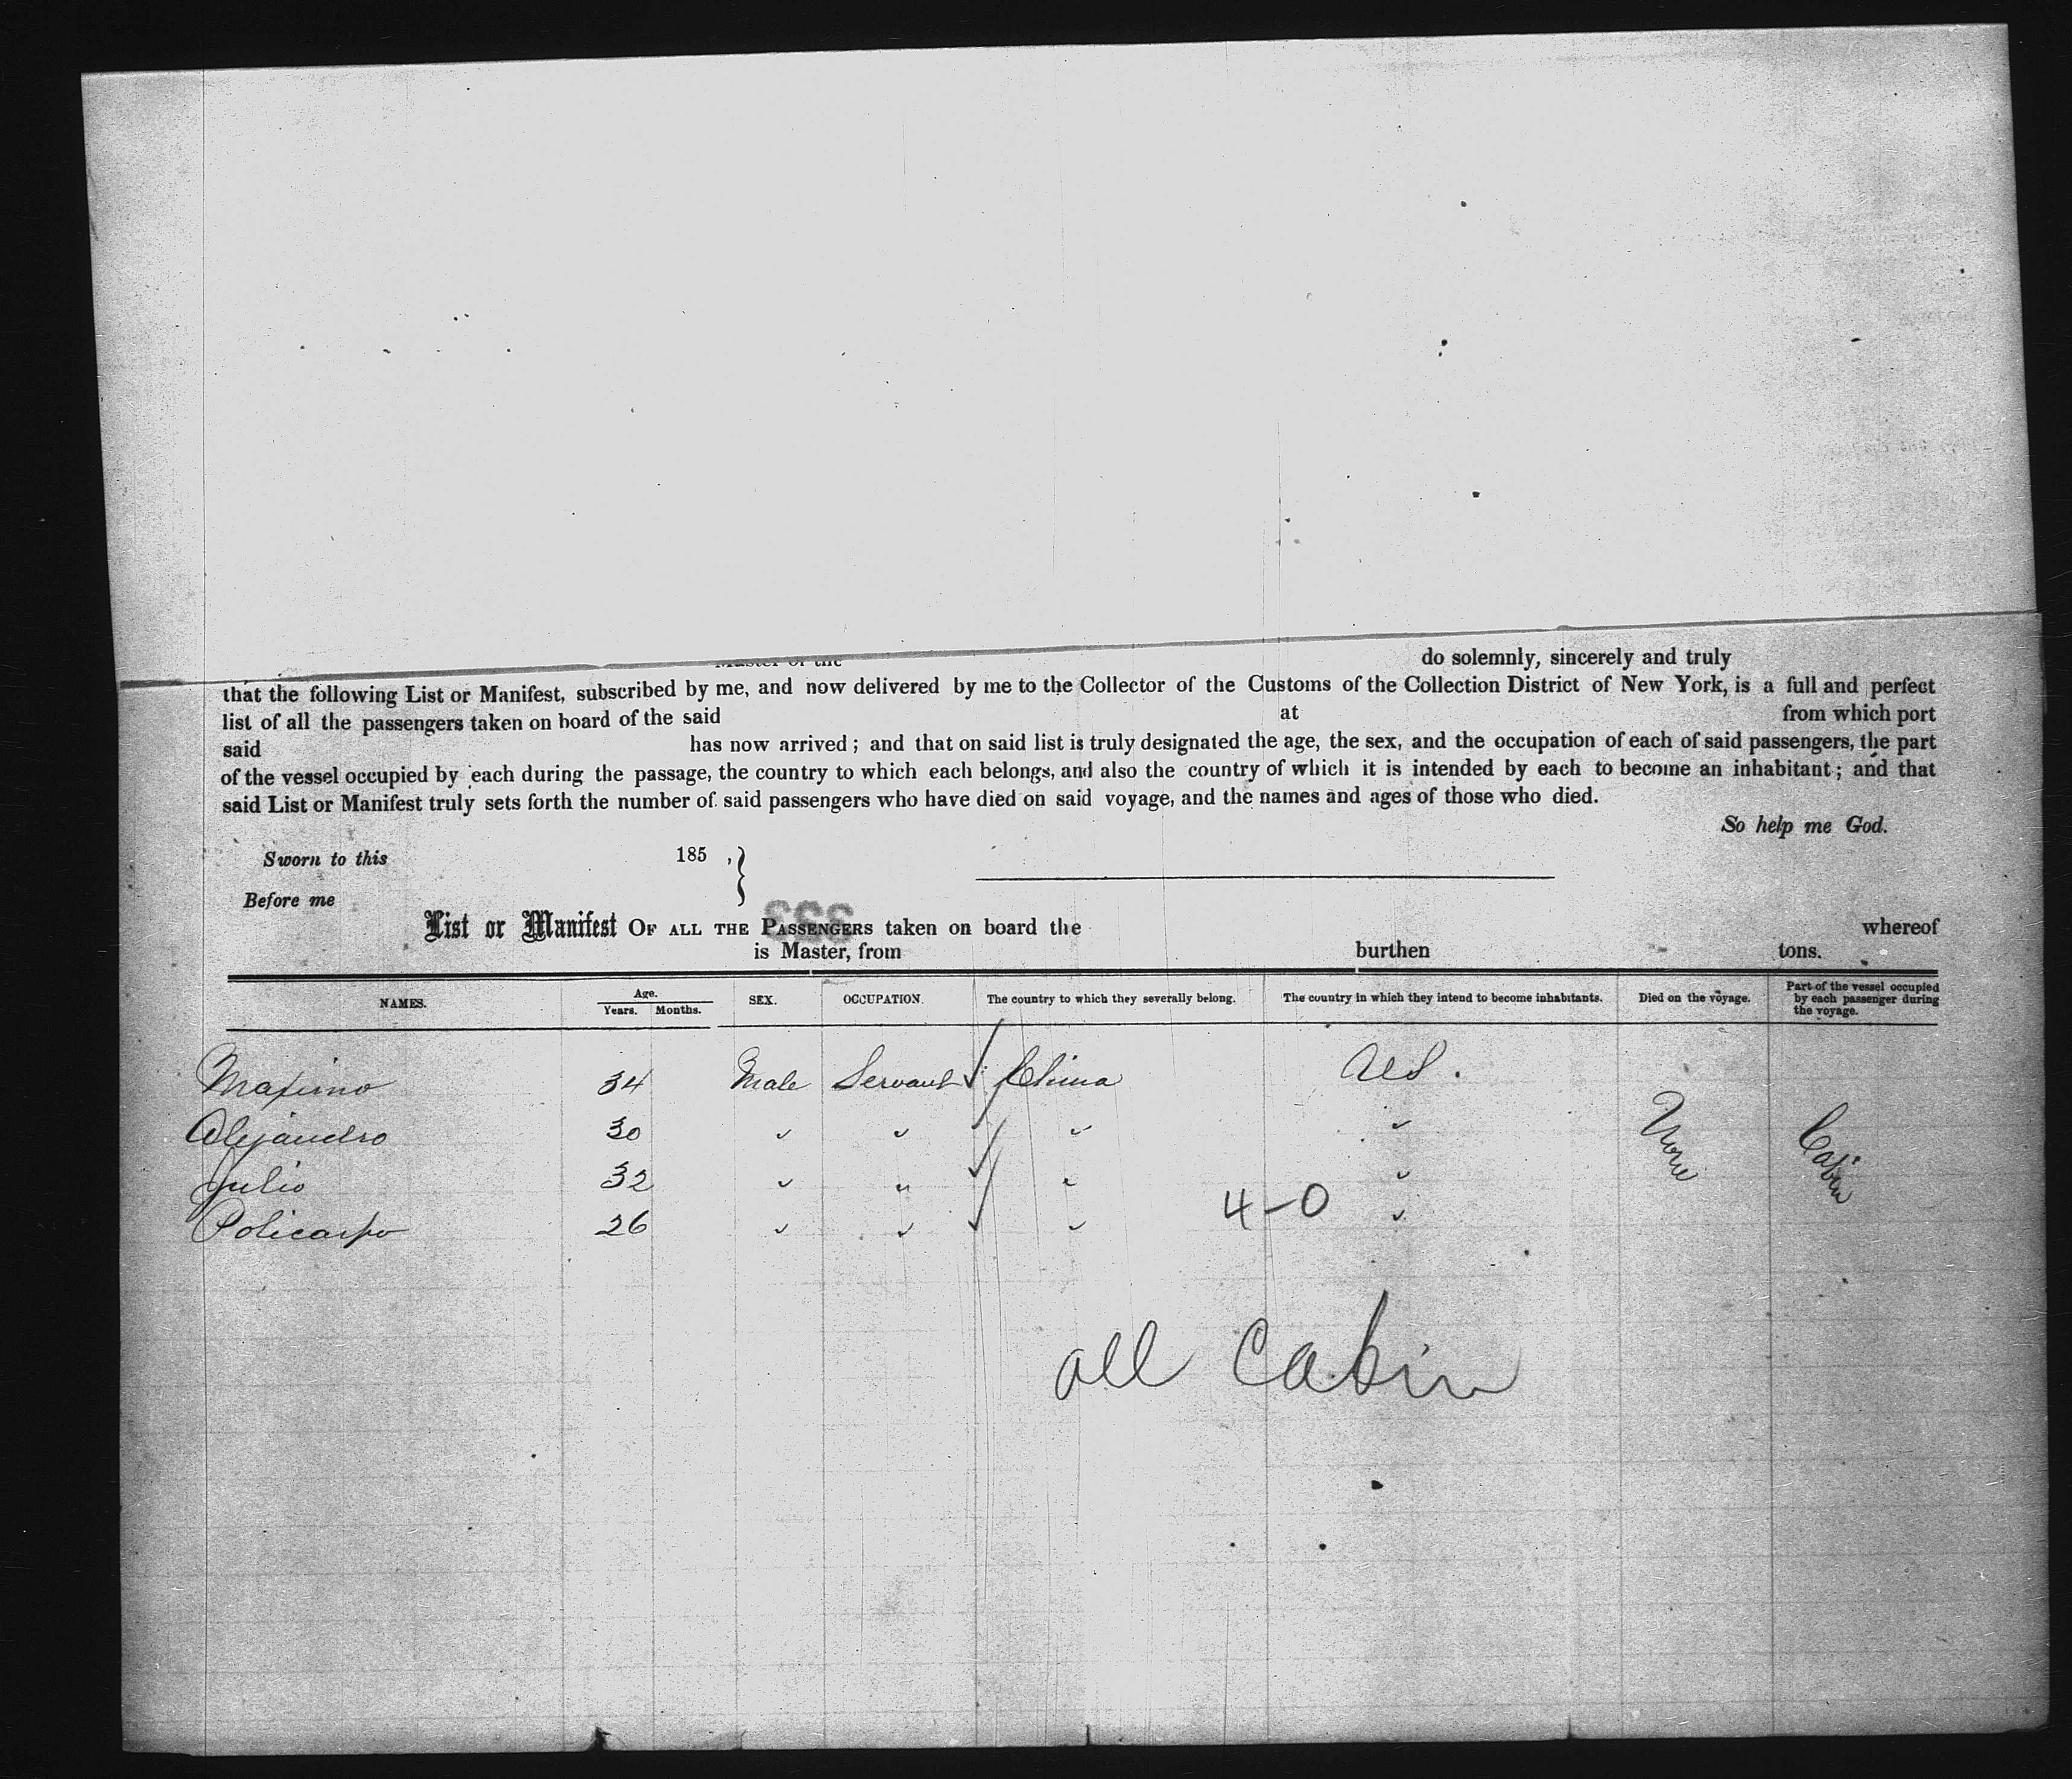 Master of the do solemnly, sincerely and truly
that the following List or Manifest, subscribed by me, and now delivered by me to the Collector of the Customs of the Collection District of New York, is a full and perfect
list of all the passengers taken on board of the said at from which port
said has now arrived; and that on said list is truly designated the age, the sex, and the occupation of each of said passengers, the part
of the vessel occupied by each during the passage, the country to which each belongs, and also the country of which it is intended by each to become an inhabitant; and that
said List or Manifest truly sets forth the number of said passengers who have died on said voyage, and the names and ages of those who died.
So help me God.
Sworn to this 185 ,
Before me
List or Manifest OF ALL THE PASSENGERS taken on board the whereof
is Master, from burthen tons.
NAMES. Age. Years. Months. SEX. OCCUPATION. The country to which they severally belong. The country in which they intend to become inhabitants. Died on the voyage. Part of the vessel occupied by each passenger during the voyage.
Maximo 34 Male Servant China US.
Alejandro 30 " " " " None Cabin
Julio 32 " " " "
Policarpo 26 " " " 4-0 "
all Cabin